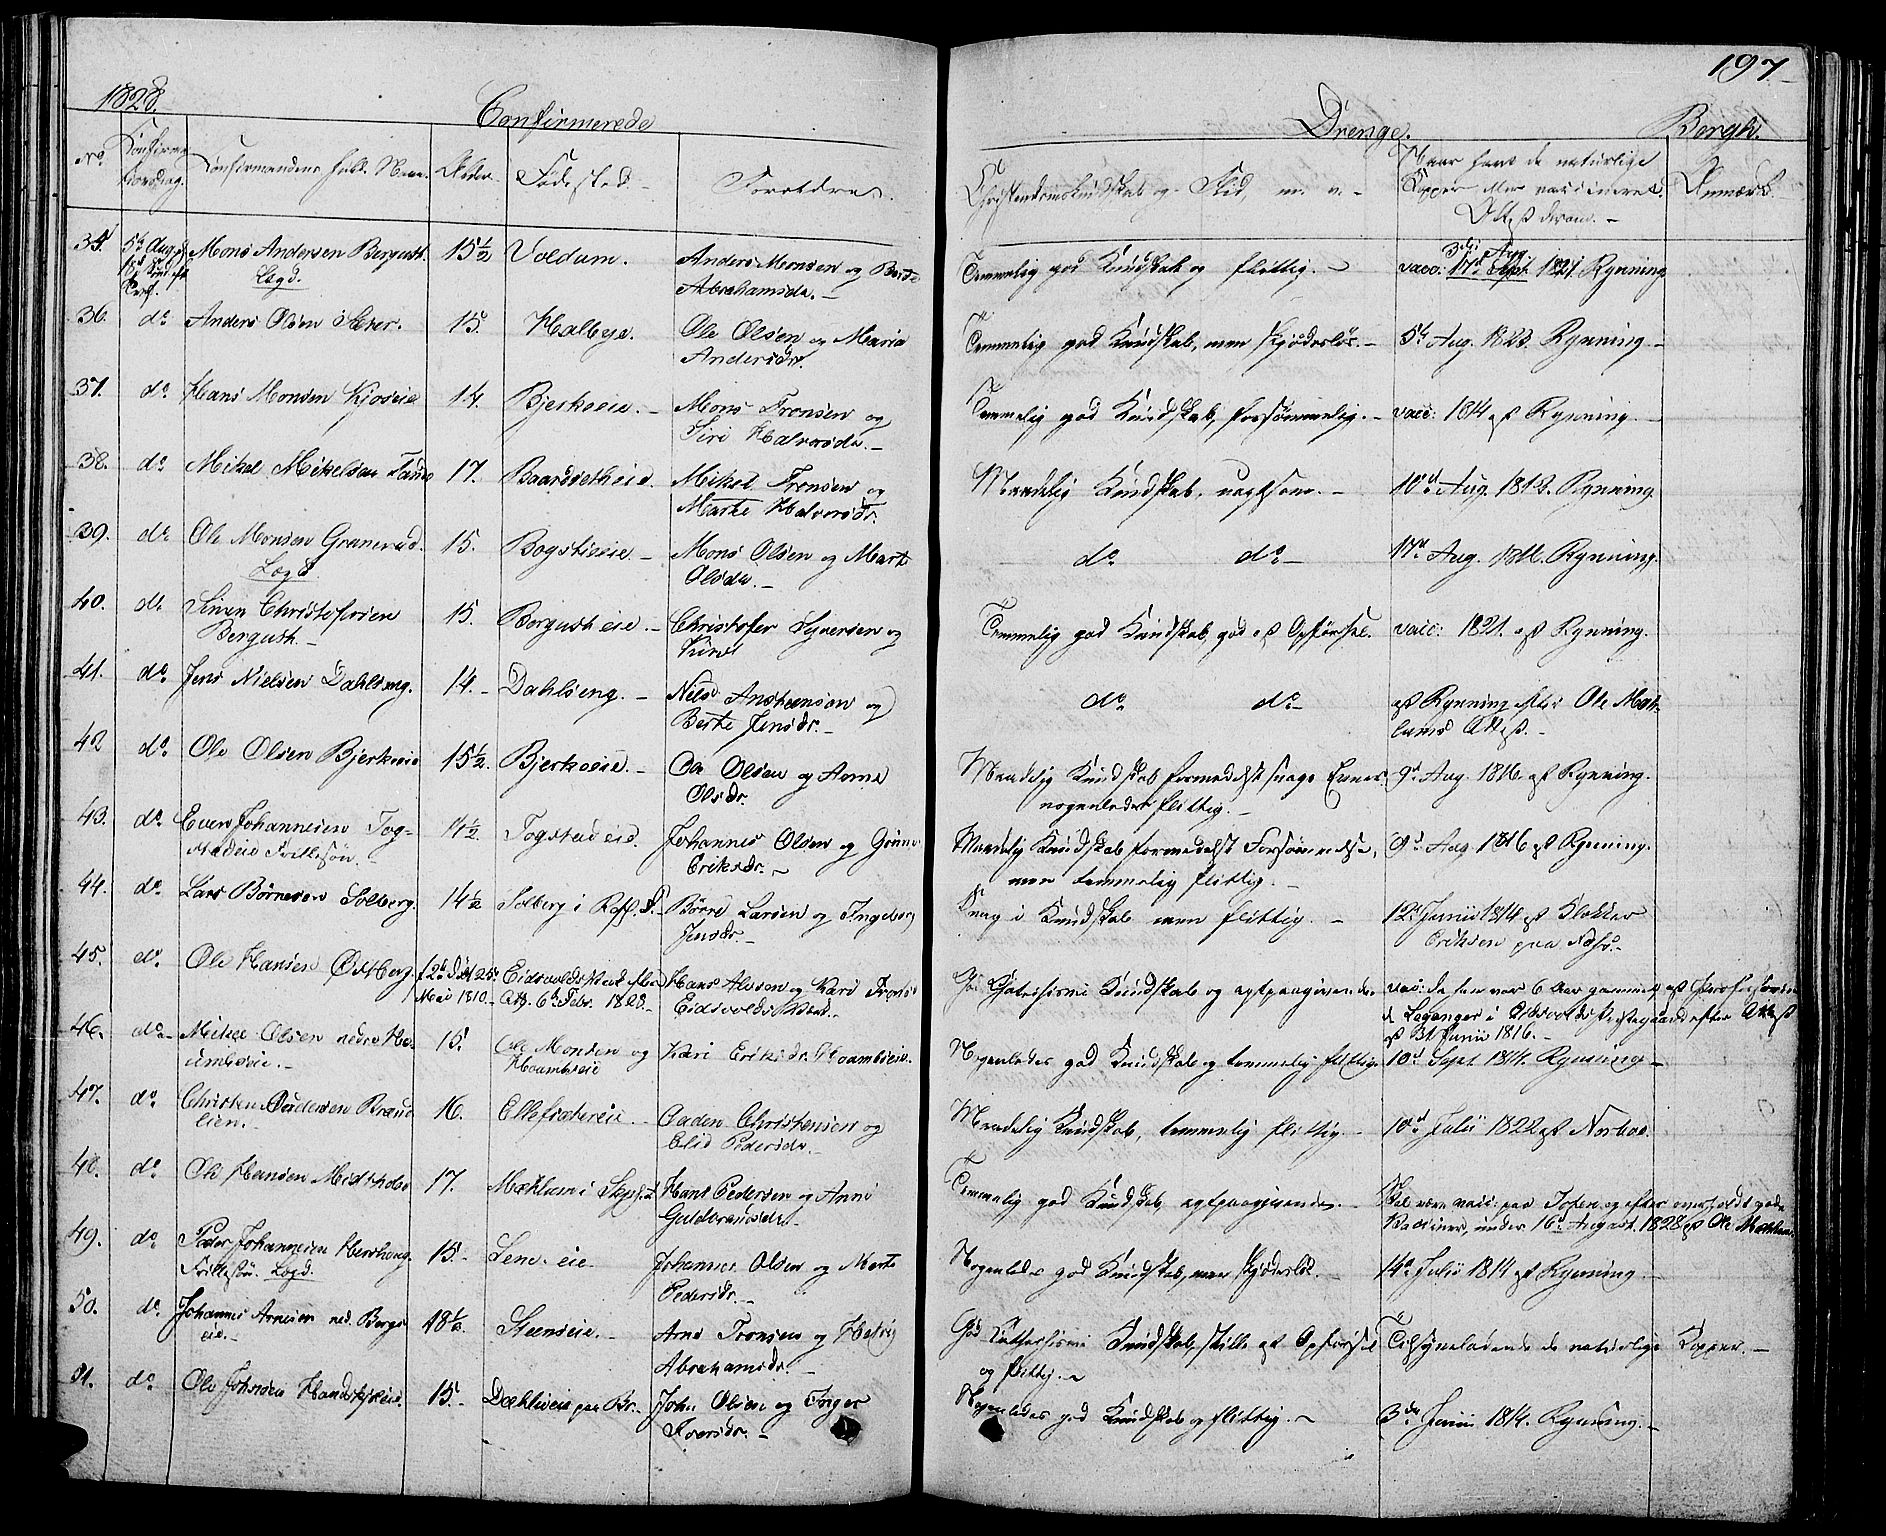 1828.
Confirmerede
Drenge.
Bergh.
197
No.
Confirma
tionsdag.
Confirmandens fulde Navn.
Alder.
Fødested.
Forældre.
Christendomskundskab og Flid, m. v.
Naar havt de naturlige
Kopper eller vaccineret.
Attest derom.
Anmærk.
35. 5te Aug. Mons Andersen Bergust. 15½ Voldum. Anders Monsen og Berte
Abrahamsdr.
Lægd.
Temmelig god Kundskab og flittig.
3die Aug.
vacc: 17de Sept. 1821. Rynning
36. do Anders Olsen 15. Halbye. Ole Olsen og Maria
Andersdr.
Temmelig god Kundskab, men skjødesløs. 5te Aug. 1823. Rynning
37. do Hans Monsen Kjoseie 14. Bjerkeeie. Mons Tronsen og
Siri Halvorsdr.
Temmelig god Kundskab, forsømmelig. vacc: 1814 af Rynning.
38. do Mikel Mikelsen 17. Baardsetheie. Mikel Tronsen og
Marte Halvorsdr.
Maadelig Kundskab, 10de Aug. 1813. Rynning
39. do Ole Monsen Granerud. 15. Bogstieie Mons Olsen og Marte
Olsdr.
Lægd
do do
17de Aug. Rynning.
40. do Simen Christofersen
Bergust.
15. Bergusteie. Christofer Syversen og
Temmelig god Kundskab, god af Opførsel. vacc: 1821. af Rynning.
41. do Jens Nielsen Dahlseng. 14. Dahlseng. Nels Anstensen og
Berte Jensdr.
do do
af Rynning efter Ole Mæh-
lums Attest.
42 do Ole Olsen Bjerkeeie 15½. Bjerkeeie. Ole Olsen og Anne
Olsdr.
Maadelig Kundskab formedelst svage Evner
nogenledes flittig.
9de Aug. 1816. af Rynning.
43. do Even Johannesen Tog-
stadeie Frillesøn.
14½ Togstadeie. Johannes Olsen og
Eriksdr.
Maadelig Kundskab formedelst Forsømmelse,
men temmelig flittig.
9de Aug 1816 af Rynning.
44. do Lars Børresen Solberg. 14½ Solberg i Børre Larsen og Ingeborg
Jensdr.
Svag i Kundskab men flittig. 12te Junii 1814 af Klokker
Eriksen paa
45. do Ole Hansen Østberg. 25de
Mai 1810.
Eidsvolds
Att. 6te Febr. 1828.
Hans Alvsen og Kari Trons
Eidsvolds
God Catechismi Kundskab og agtpaagivende vac: da han var 6 Aar gammel af
Leganger i Eidsvolds Præstegaard efter Attest
af 31 Junii 1816.
46. do Mikel Olsen nedre Ho-
umbseie.
15. Ole Monsen og
Hoambseie
Kari Eriksdr. Hoambseie.
Nogenledes god Kundskab og temmelig flittig. 10de Sept. 1814. Rynning
47. do Christen Oudensen Braad
lien.
16. Ellefsætereie. Ouden Christensen og
Elid Pedersdr.
Maadelig Kundskab, temmelig flittig 10de Julii 1822 af Norboe.
48. do Ole Hansen 17. Mæhlum i Hans Pedersen og Anne
Guldbrandsdr.
Temmelig god Kundskab agtpaagivende. Skal være vacc: paa Toten og efter
under 16de August. 1828 af Ole Mæhlum
49. do Peder Johannesen
Frillesøn. Lægd.
15. eie Johannes Olsen og Marte
Pedersdr.
Nogenledes god Kundskab, men skjødesløs. 14de Julii 1814 af Rynning
50. do Johannes Arnesen ned. Bergs
eie.
18½. Steenseie. Arne Tronsen og
Abrahamsdr.
God Cattechismi Kundskab, stille af Opførsel
og flittig.
Tilsyneladende de naturlige Kopper.
51. do Ole Johnsen 15. Dæhlieeie paa Br. John Olsen og Inger
Iversdr.
Nogenledes god Kundskab og flittig. 3die Junii 1814. Rynning.